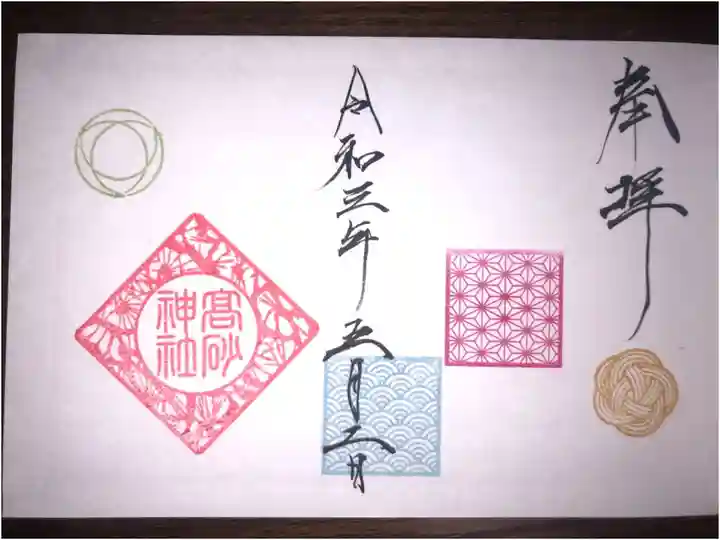 奉拝
令和三年五月二日
高砂
神社